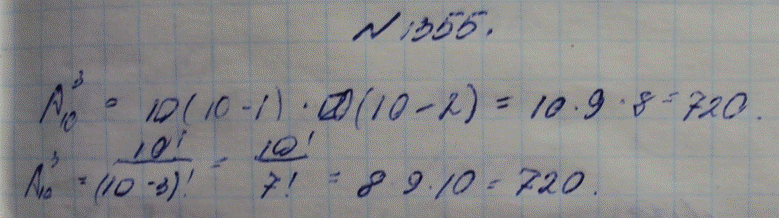 № 1355.
A₁₀³ = 10(10-1)·(10-2) = 10·9·8=720.
A₁₀³ = 10!/(10-3)! = 10!/7! = 8 9·10=720.